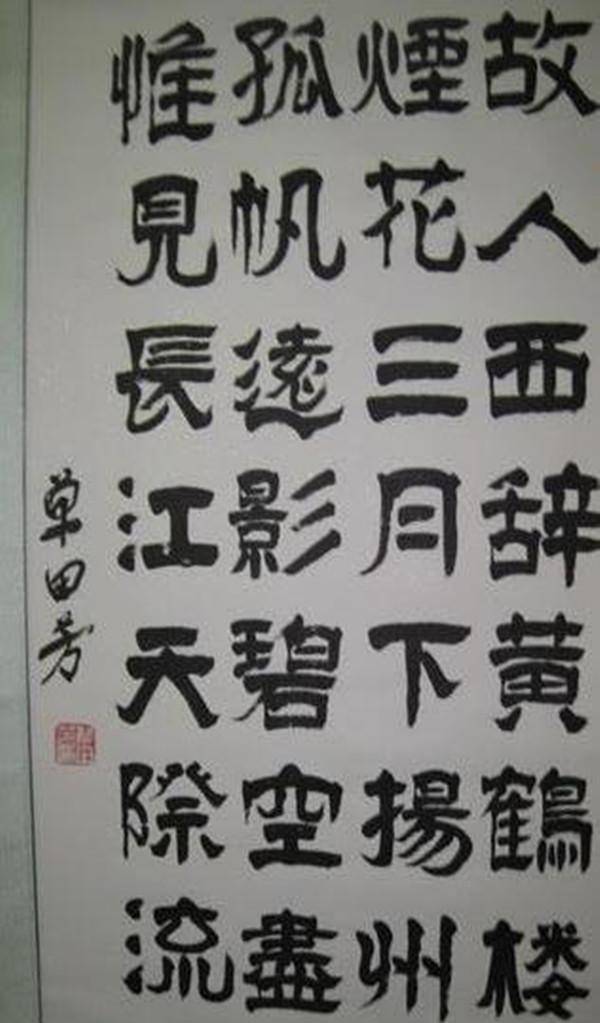 故人西辞黄鶴楼
煙花三月下揚州
孤帆遠影碧空盡
惟見長江天際流
單田芳